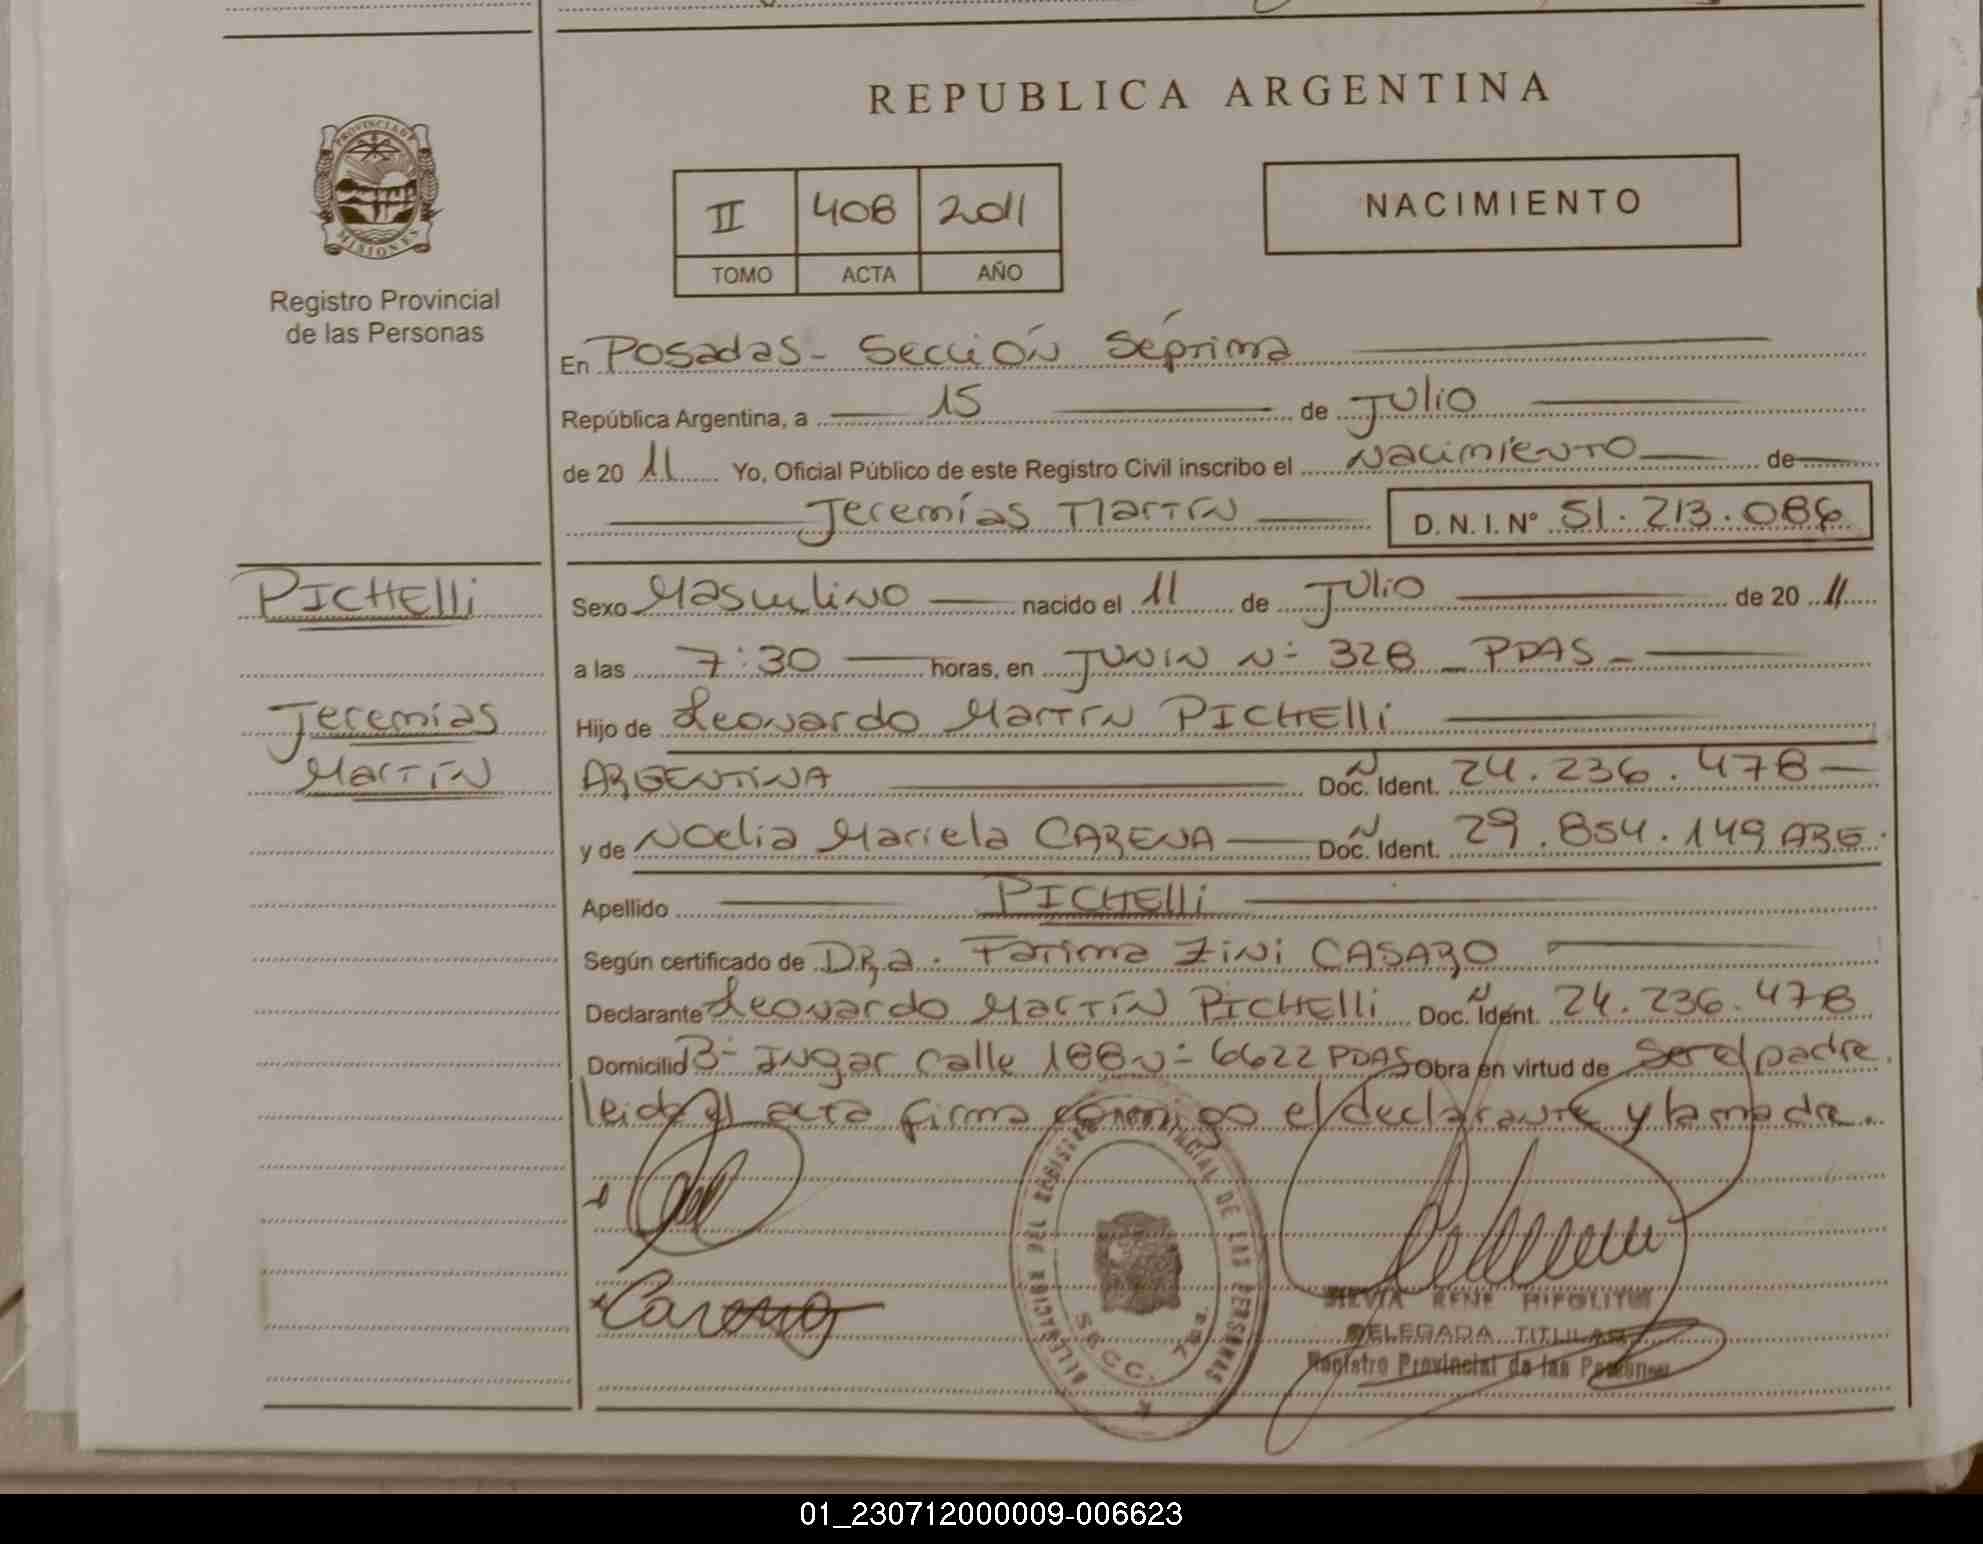 PROVINCIA DE
MISIONES
Registro Provincial
de las Personas
REPUBLICA ARGENTINA
II 408 2011
TOMO ACTA AÑO
NACIMIENTO
En Posadas - Sección Séptima
República Argentina, a 15 de Julio
de 20 11 Yo, Oficial Público de este Registro Civil inscribo el Nacimiento de
Jeremías Martín D. N. I. Nº 51.213.086
PICHElli
Sexo Masculino nacido el 11 de Julio de 20 11
a las 7:30 horas, en JUNIN Nº 328 - PDAS -
Jeremías
Hijo de Leonardo Martín PICHElli
Martín
ARGENTINA Doc. Ident. 24.236.478
y de Noelia Mariela CARENA Doc. Ident. 29.854.149 ARG.
Apellido PICHElli
Según certificado de DRa. Fatima Zini CASARO
Declarante Leonardo Martín PICHElli Doc. Ident. 24.236.478
Domicilio Bº Ingar calle 188 Nº 6622 PDAS Obra en virtud de ser el padre.
leida el acta firma conmigo el declarante y la madre.
Carena
DELEGACION DEL REGISTRO PROVINCIAL DE LAS PERSONAS
SECC. 7ma.
SILVIA RENE HIPOLITO
DELEGADA TITULAR
Registro Provincial de las Personas
01_230712000009-006623